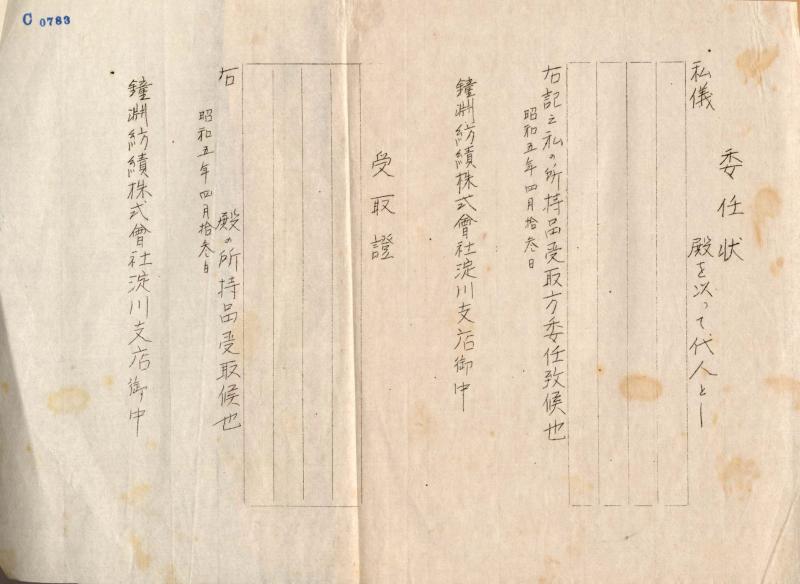 C 0783
委任状
私儀 殿を以って代人とし
右記之私の所持品受取方委任致候也
昭和五年四月拾参日
鐘淵紡績株式會社淀川支店御中
受取證
右 殿の所持品受取候也
昭和五年四月拾参日
鐘淵紡績株式會社淀川支店御中